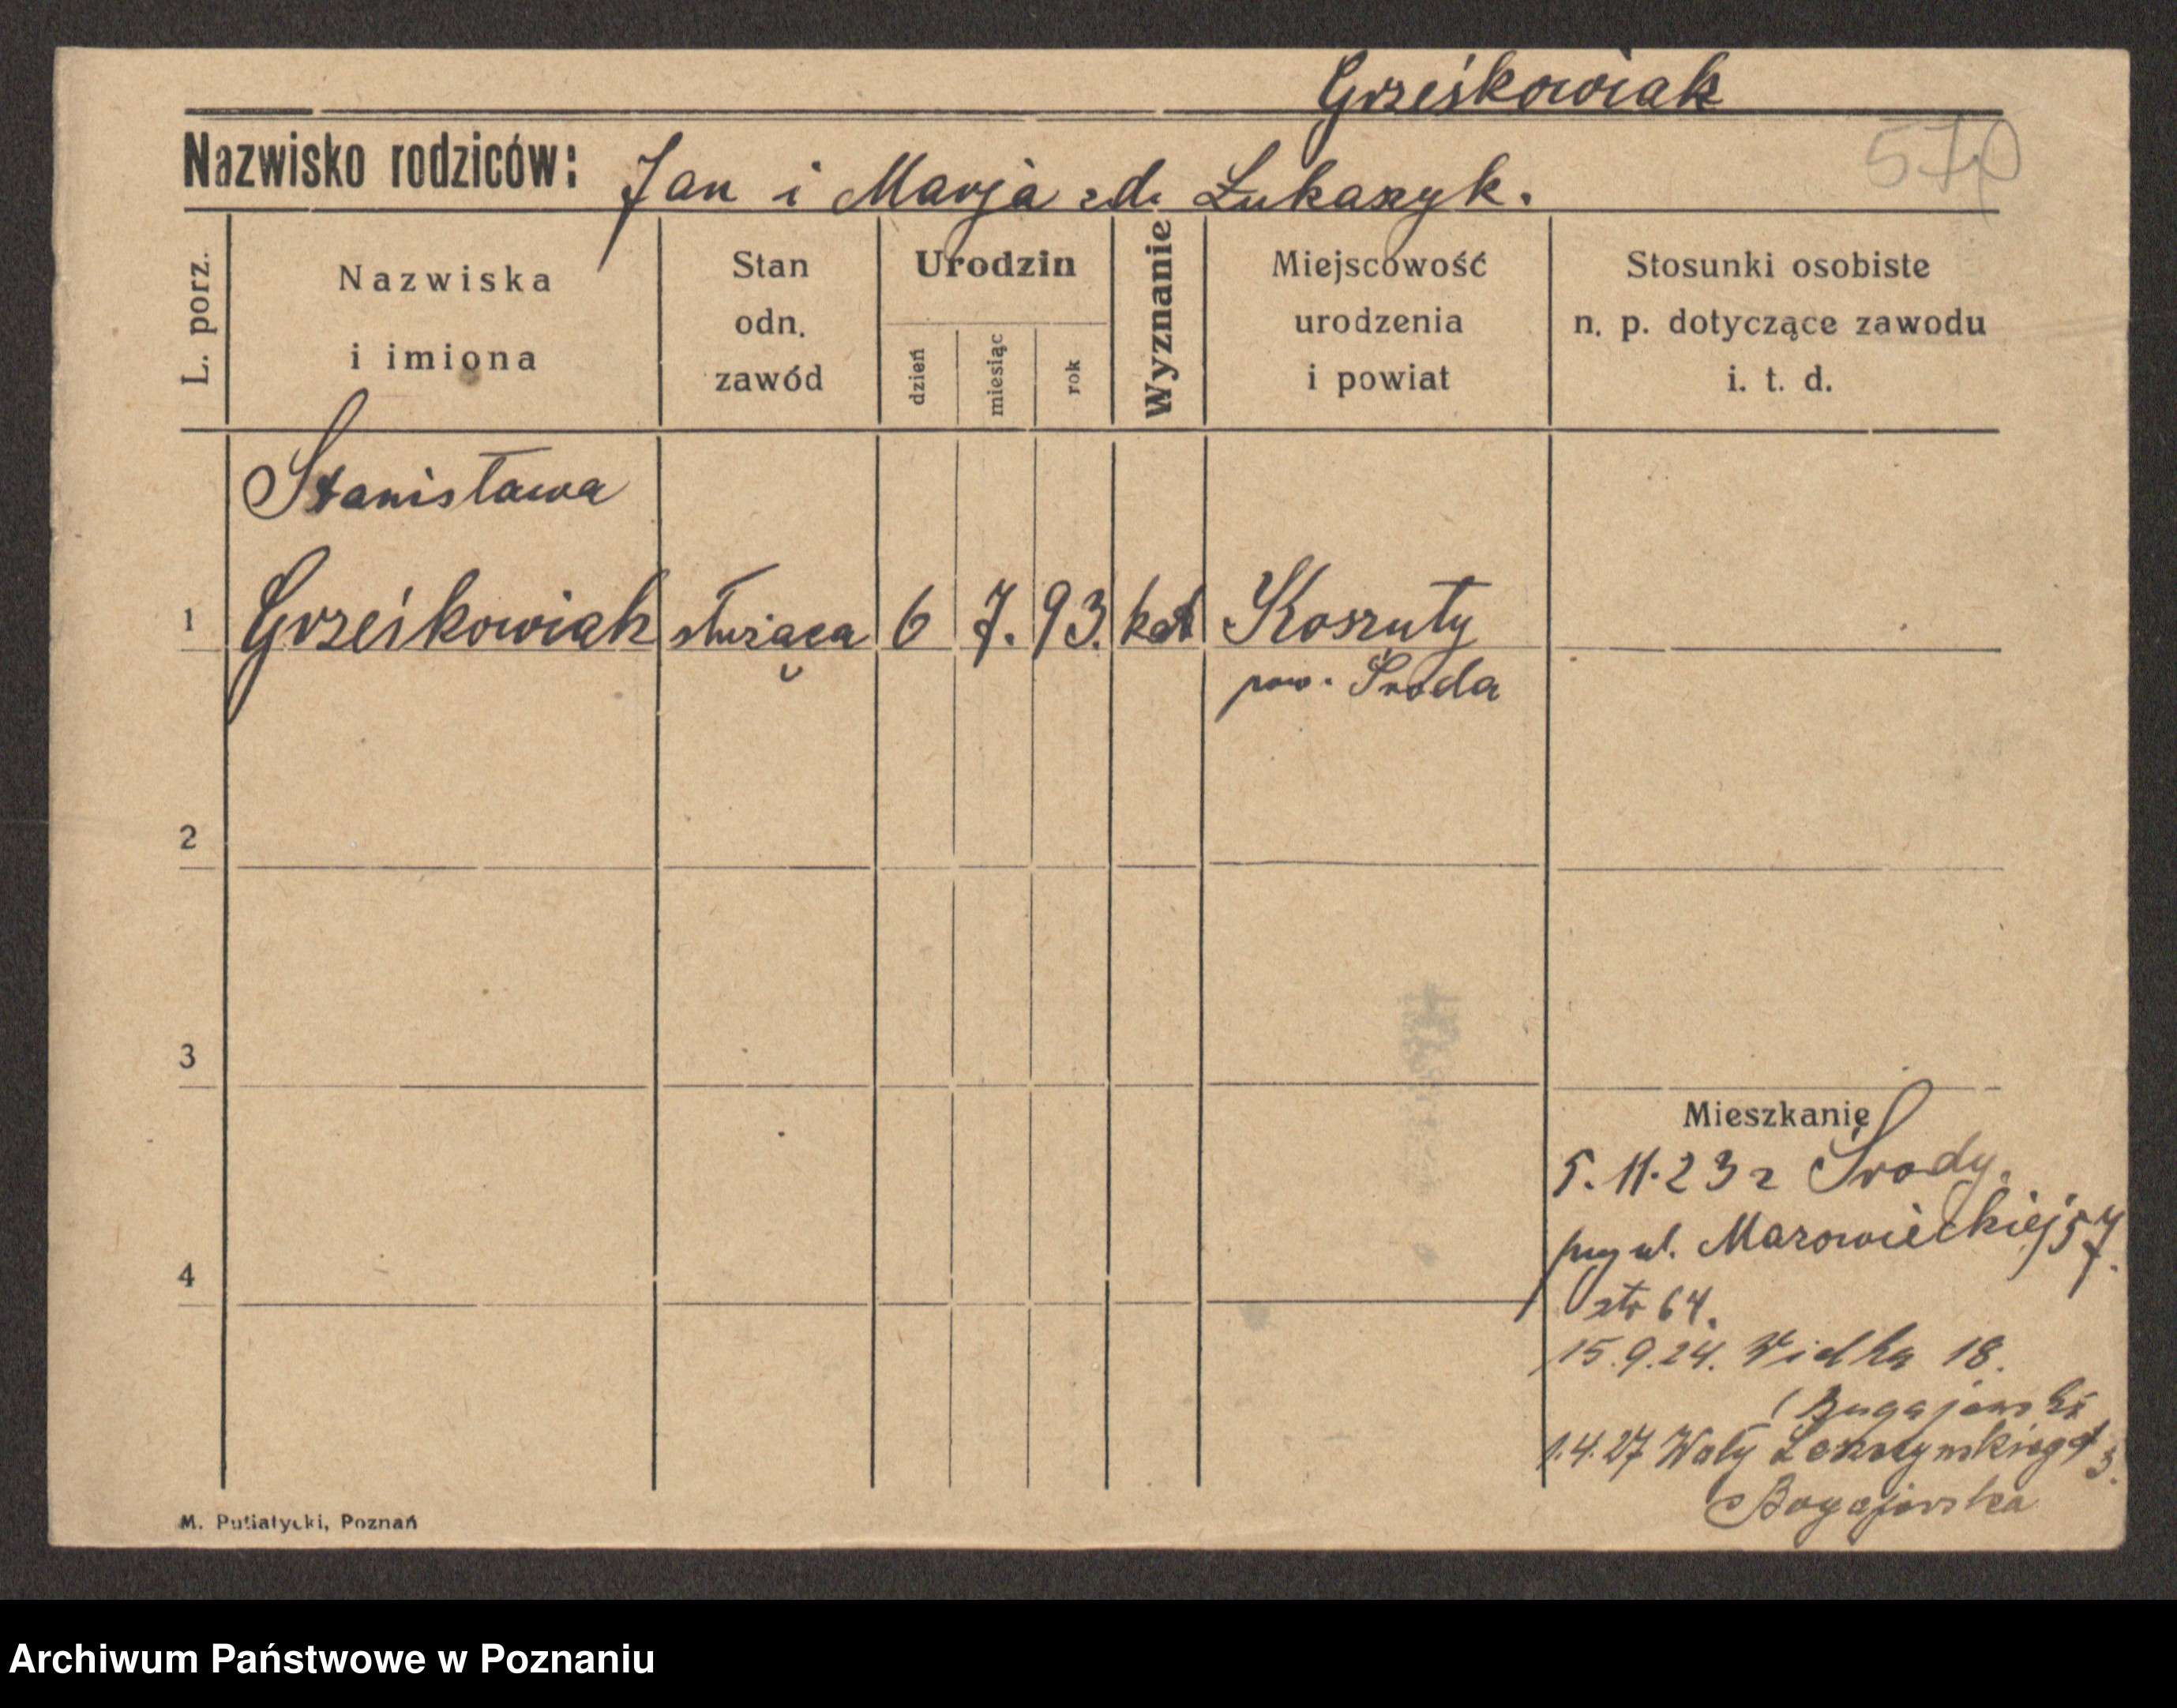 Grześkowiak
570
Nazwisko rodziców: Jan i Marja zd. Łukaszyk.
L. porz.
Nazwiska
i imiona
Stan
odn.
zawód
Urodzin
dzień
miesiąc
rok
Wyznanie
Miejscowość
urodzenia
i powiat
Stosunki osobiste
n. p. dotyczące zawodu
i. t. d.
Stanisława
1 Grześkowiak służąca 6 7. 93. kat Koszuty
pow. Środa
2
3
Mieszkanie
5.11.23 z Środy.
przy ul. Mazowieckiej 57.
4
str 64.
15.9.24. Wielka 18.
(Bugajewski
1.4.27 Wały Leszczyńskiego 3.
Bugajewska
M. Putiatycki, Poznań
Archiwum Państwowe w Poznaniu